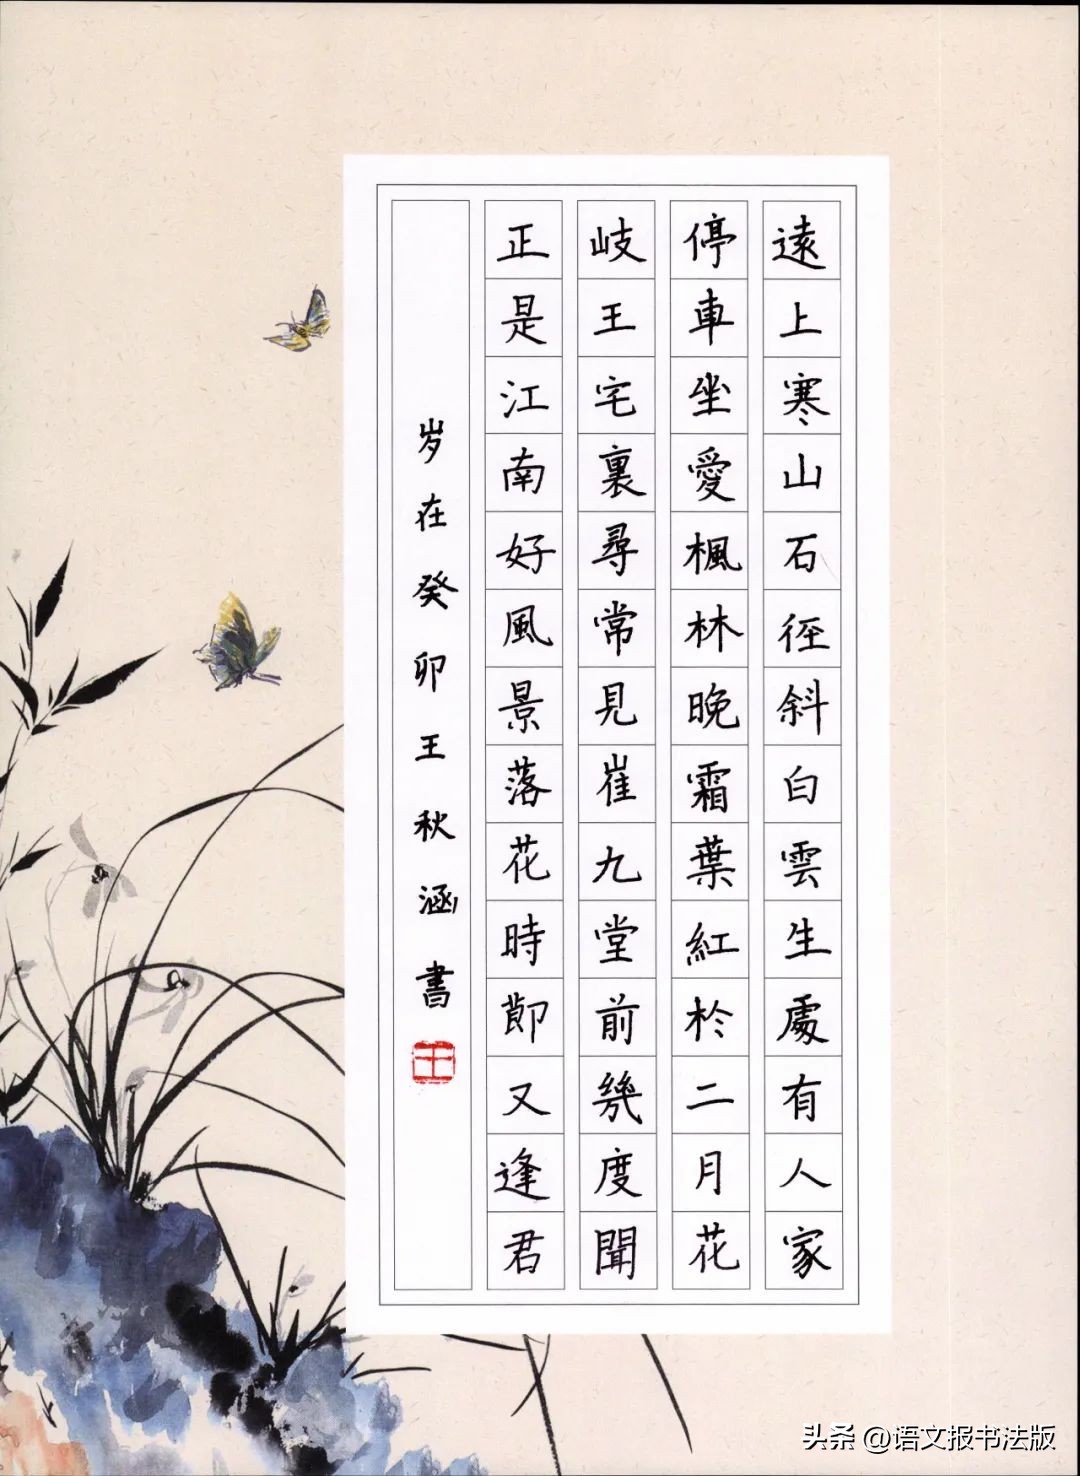 遠上寒山石徑斜白雲生處有人家
停車坐愛楓林晚霜葉紅於二月花
岐王宅裏尋常見崔九堂前幾度聞
正是江南好風景落花時節又逢君
岁在癸卯王秋涵書
王
头条 @语文报书法版